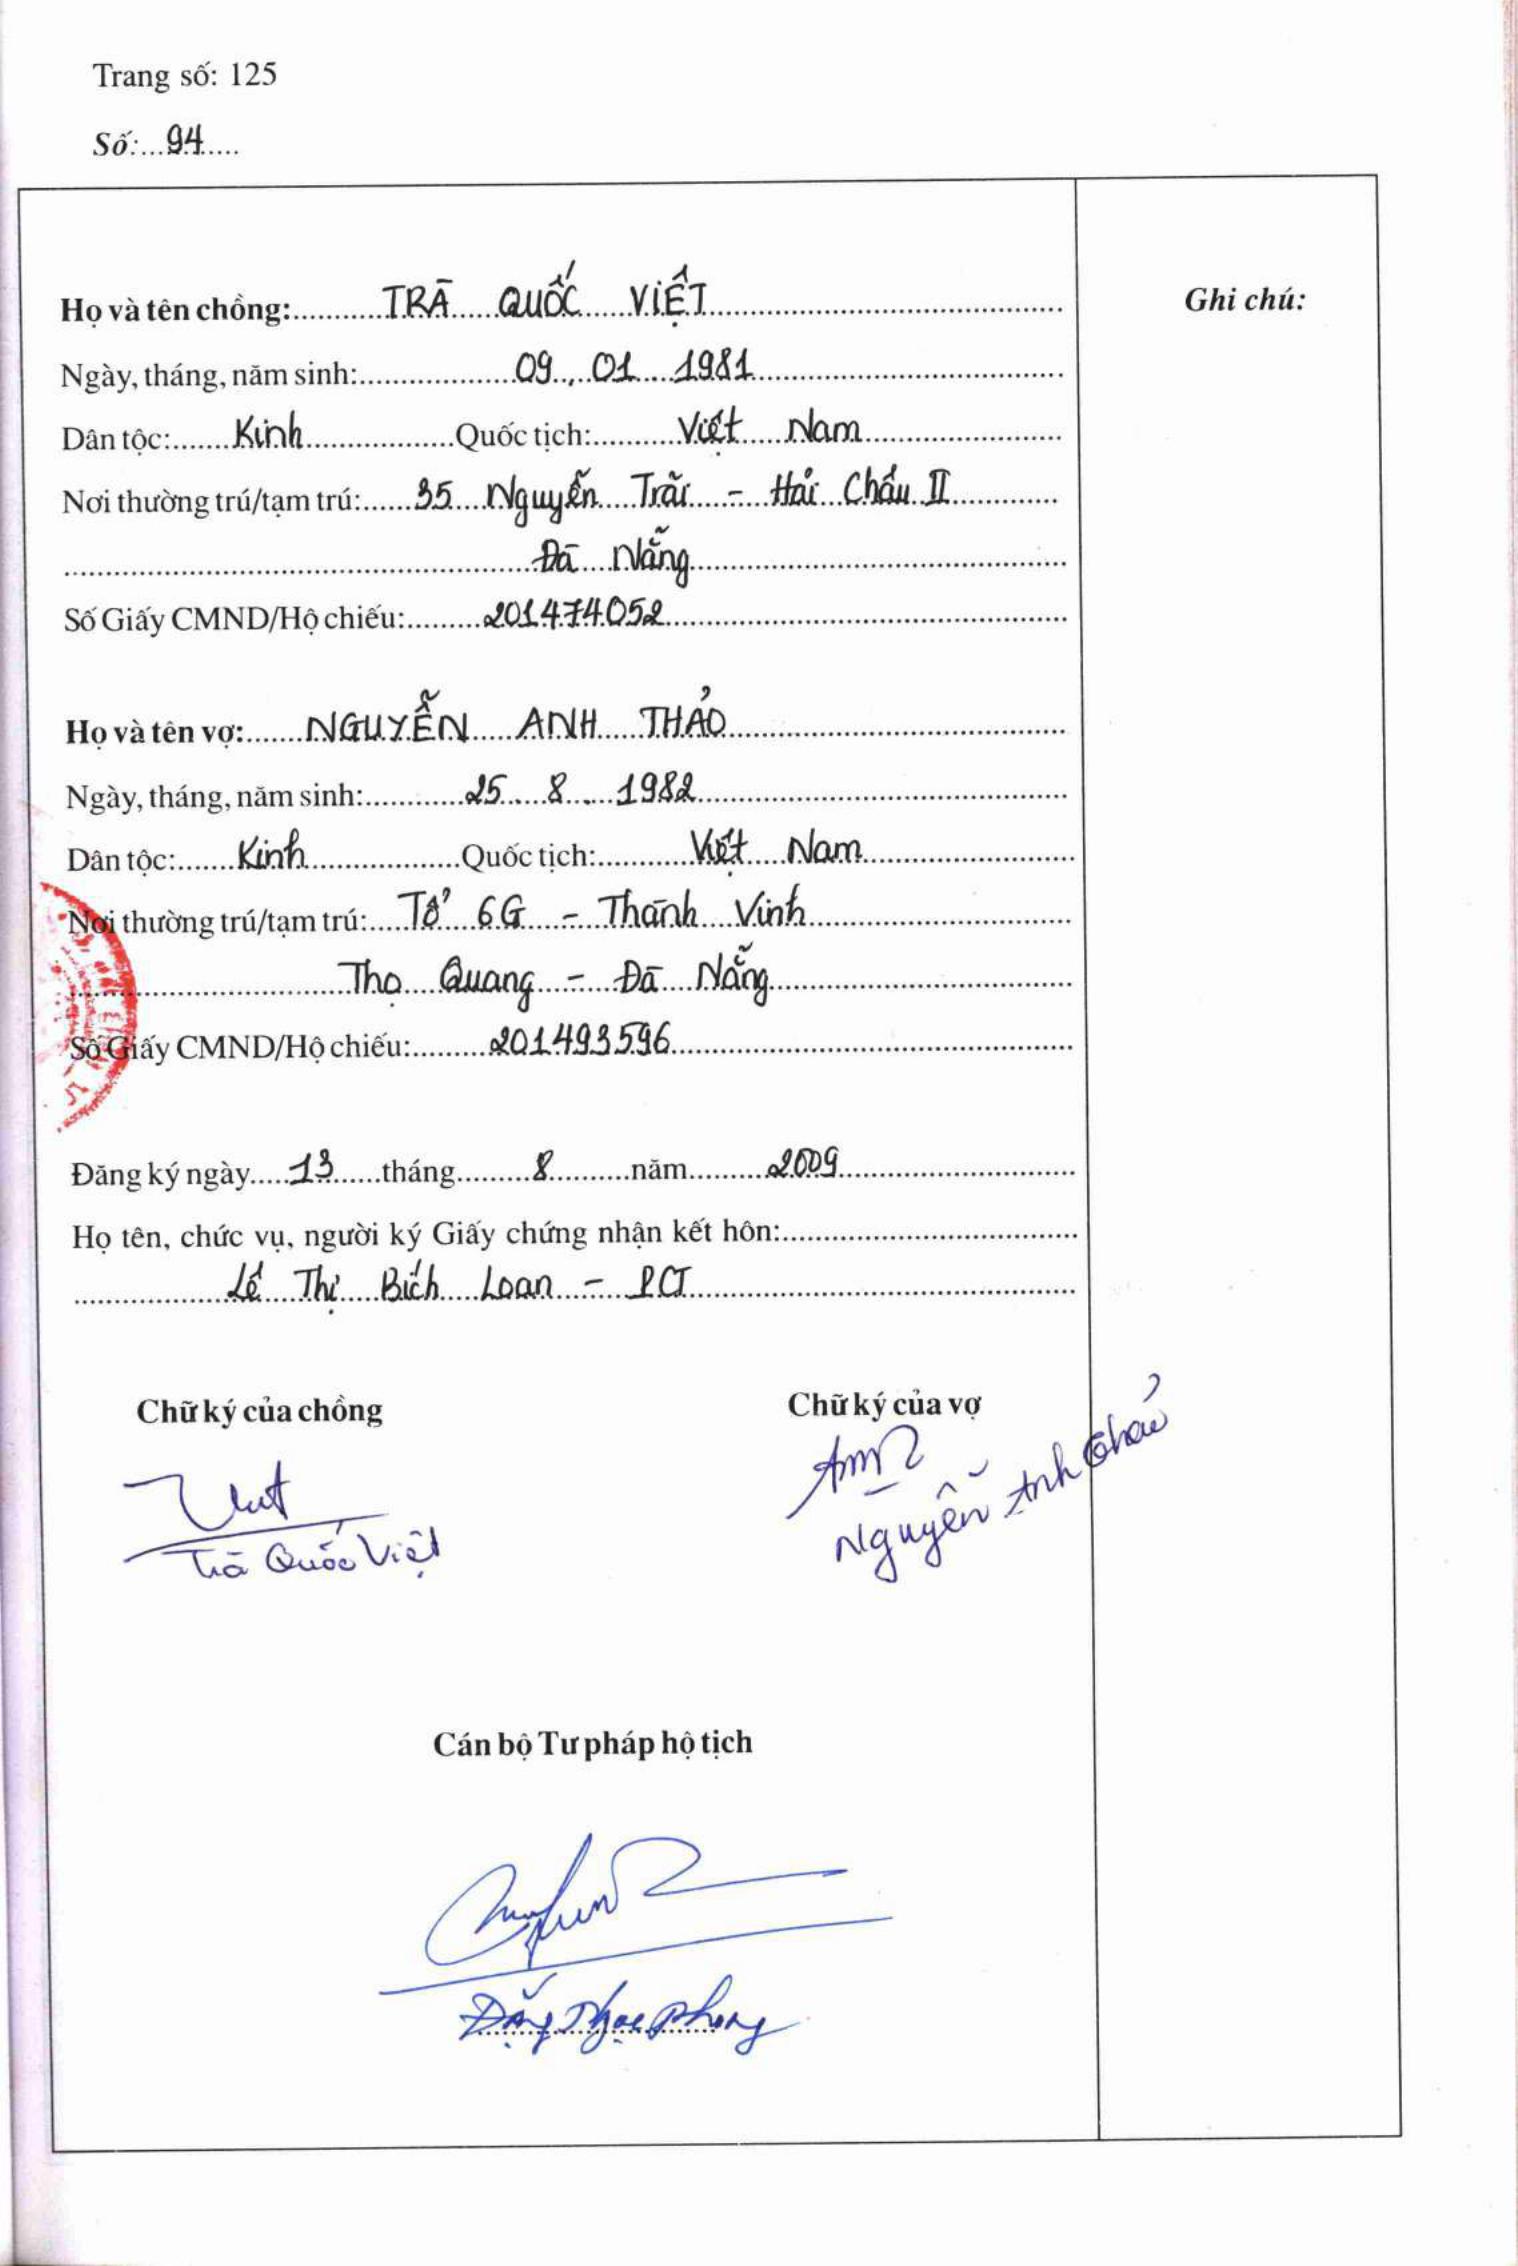 Trang số: 125
Số: 94
Ghi chú:
Họ và tên chồng: TRÀ QUỐC VIỆT
Ngày, tháng, năm sinh: 09 . 01 . 1981
Dân tộc: Kinh Quốc tịch: Việt Nam
Nơi thường trú/tạm trú: 35 Nguyễn Trãi - Hải Châu II
Đà Nẵng
Số Giấy CMND/Hộ chiếu: 201474052
Họ và tên vợ: NGUYỄN ANH THẢO
Ngày, tháng, năm sinh: 25 . 8 . 1982
Dân tộc: Kinh Quốc tịch: Việt Nam
Nơi thường trú/tạm trú: Tổ 6G - Thành Vinh
Thọ Quang - Đà Nẵng
Số Giấy CMND/Hộ chiếu: 201493596
Đăng ký ngày 13 tháng 8 năm 2009
Họ tên, chức vụ, người ký Giấy chứng nhận kết hôn:
Lê Thị Bích Loan - PCT
Chữ ký của chồng Chữ ký của vợ
Trà Quốc Việt Nguyễn Anh Thảo
Cán bộ Tư pháp hộ tịch
Đặng Ngọc Phong